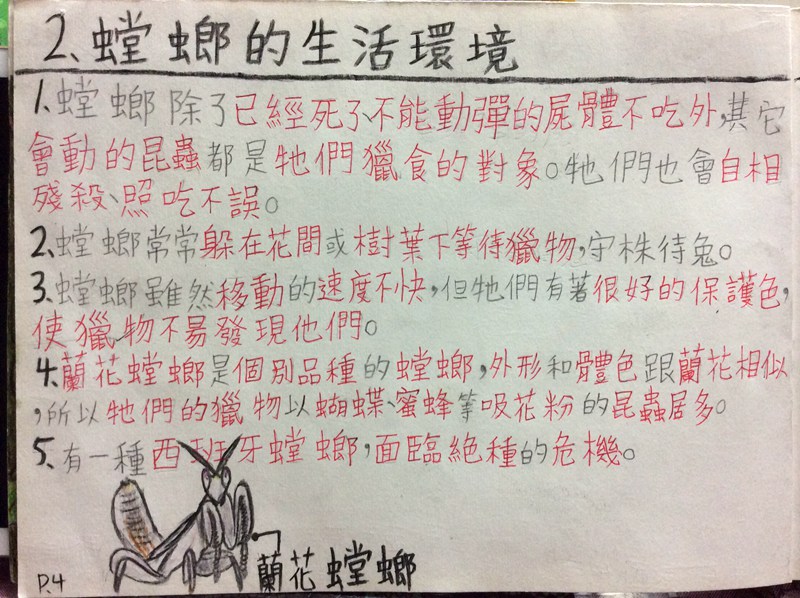 2、螳螂的生活環境
1.螳螂除了已經死了、不能動彈的屍體不吃外,其它
會動的昆蟲都是牠們獵食的對象。牠們也會自相
殘殺、照吃不誤。
2.螳螂常常躲在花間或樹葉下等待獵物,守株待兔。
3.螳螂雖然移動的速度不快,但牠們有著很好的保護色,
使獵物不易發現他們。
4.蘭花螳螂是個別品種的螳螂,外形和體色跟蘭花相似
,所以牠們的獵物以蝴蝶、蜜蜂等吸花粉的昆蟲居多。
5.有一種西班牙螳螂,面臨絕種的危機。
蘭花螳螂
P.4